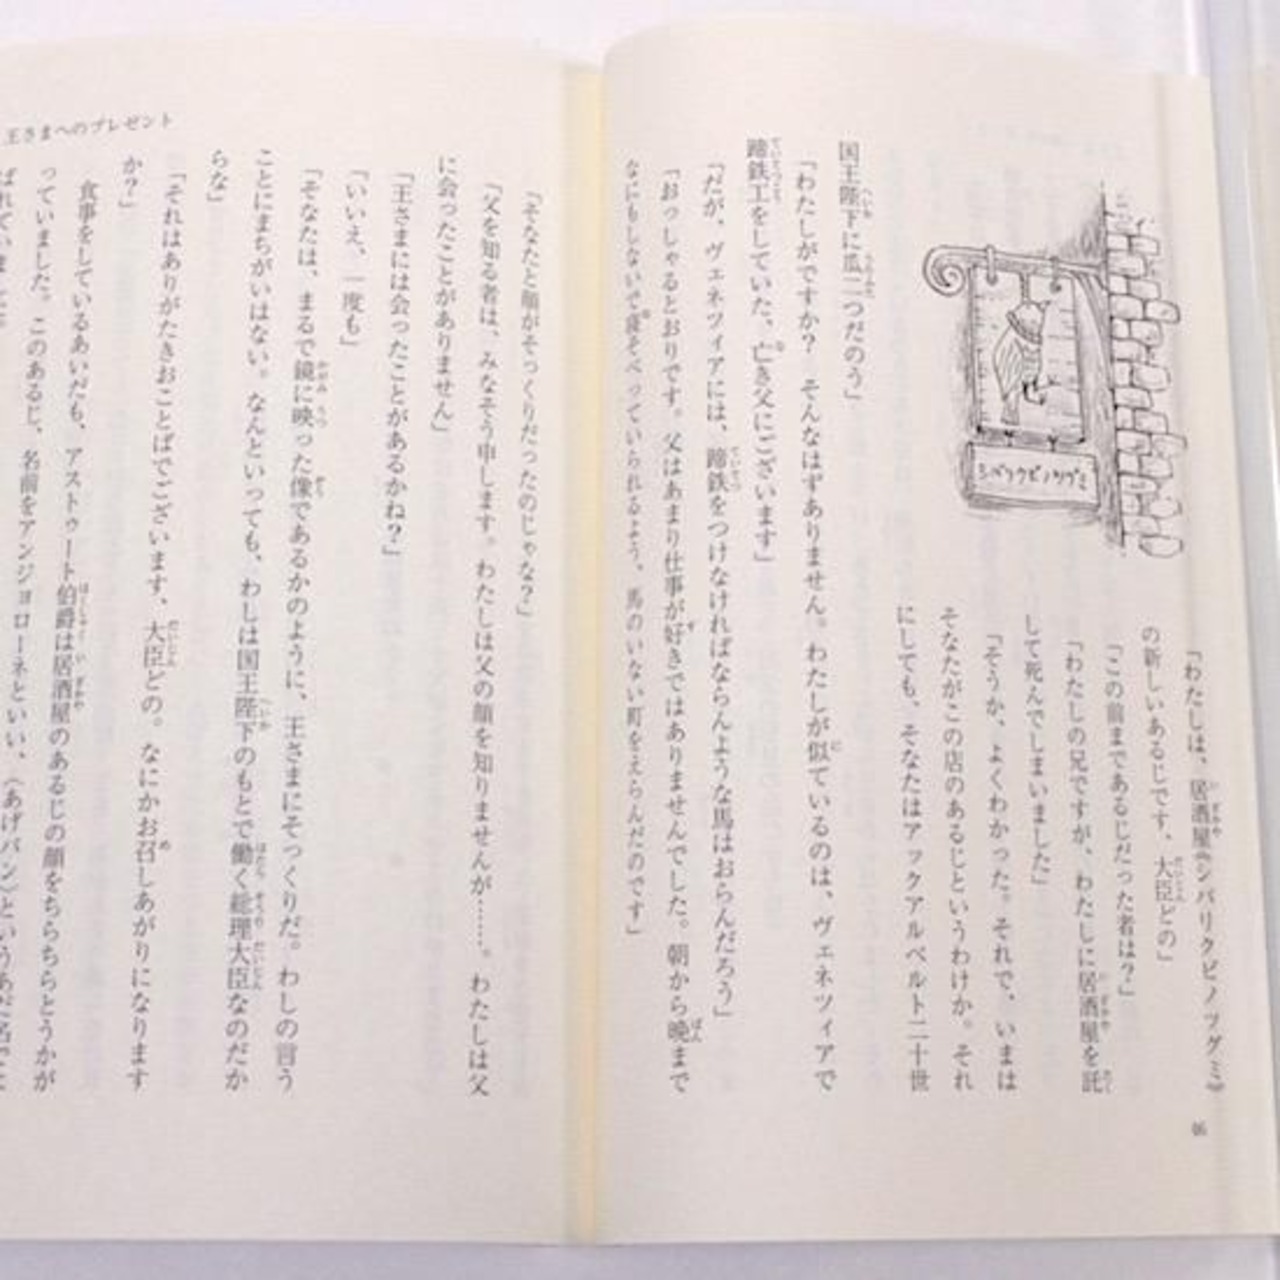 シバリクビノツグミ
「わたしは、居酒屋《シバリクビノツグミ》
の新しいあるじです、大臣どの」
「この前まであるじだった者は？」
「わたしの兄ですが、わたしに居酒屋を託
して死んでしまいました」
「そうか、よくわかった。それで、いまは
そなたがこの店のあるじというわけか。それ
にしても、そなたはアックアルベルト二十世
国王陛下に瓜二つだのう」
「わたしがですか？　そんなはずありません。わたしが似ているのは、ヴェネツィアで
蹄鉄工をしていた、亡き父にございます」
「だが、ヴェネツィアには、蹄鉄をつけなければならんような馬はおらんだろう」
「おっしゃるとおりです。父はあまり仕事が好きではありませんでした。朝から晩まで
なにもしないで寝そべっていられるよう、馬のいない町をえらんだのです」
46
王さまへのプレゼント
「そなたと顔がそっくりだったのじゃな？」
「父を知る者は、みなそう申します。わたしは父の顔を知りませんが……。わたしは父
に会ったことがありません」
「王さまには会ったことがあるかね？」
「いいえ、一度も」
「そなたは、まるで鏡に映った像であるかのように、王さまにそっくりだ。わしの言う
ことにまちがいはない。なんといっても、わしは国王陛下のもとで働く総理大臣なのだか
らな」
「それはありがたきおことばでございます、大臣どの。なにかお召しあがりになります
か？」
食事をしているあいだも、アストゥート伯爵は居酒屋のあるじの顔をちらちらとうかが
っていました。このあるじ、名前をアンジョローネといい、〈あげパン〉というあだ名で